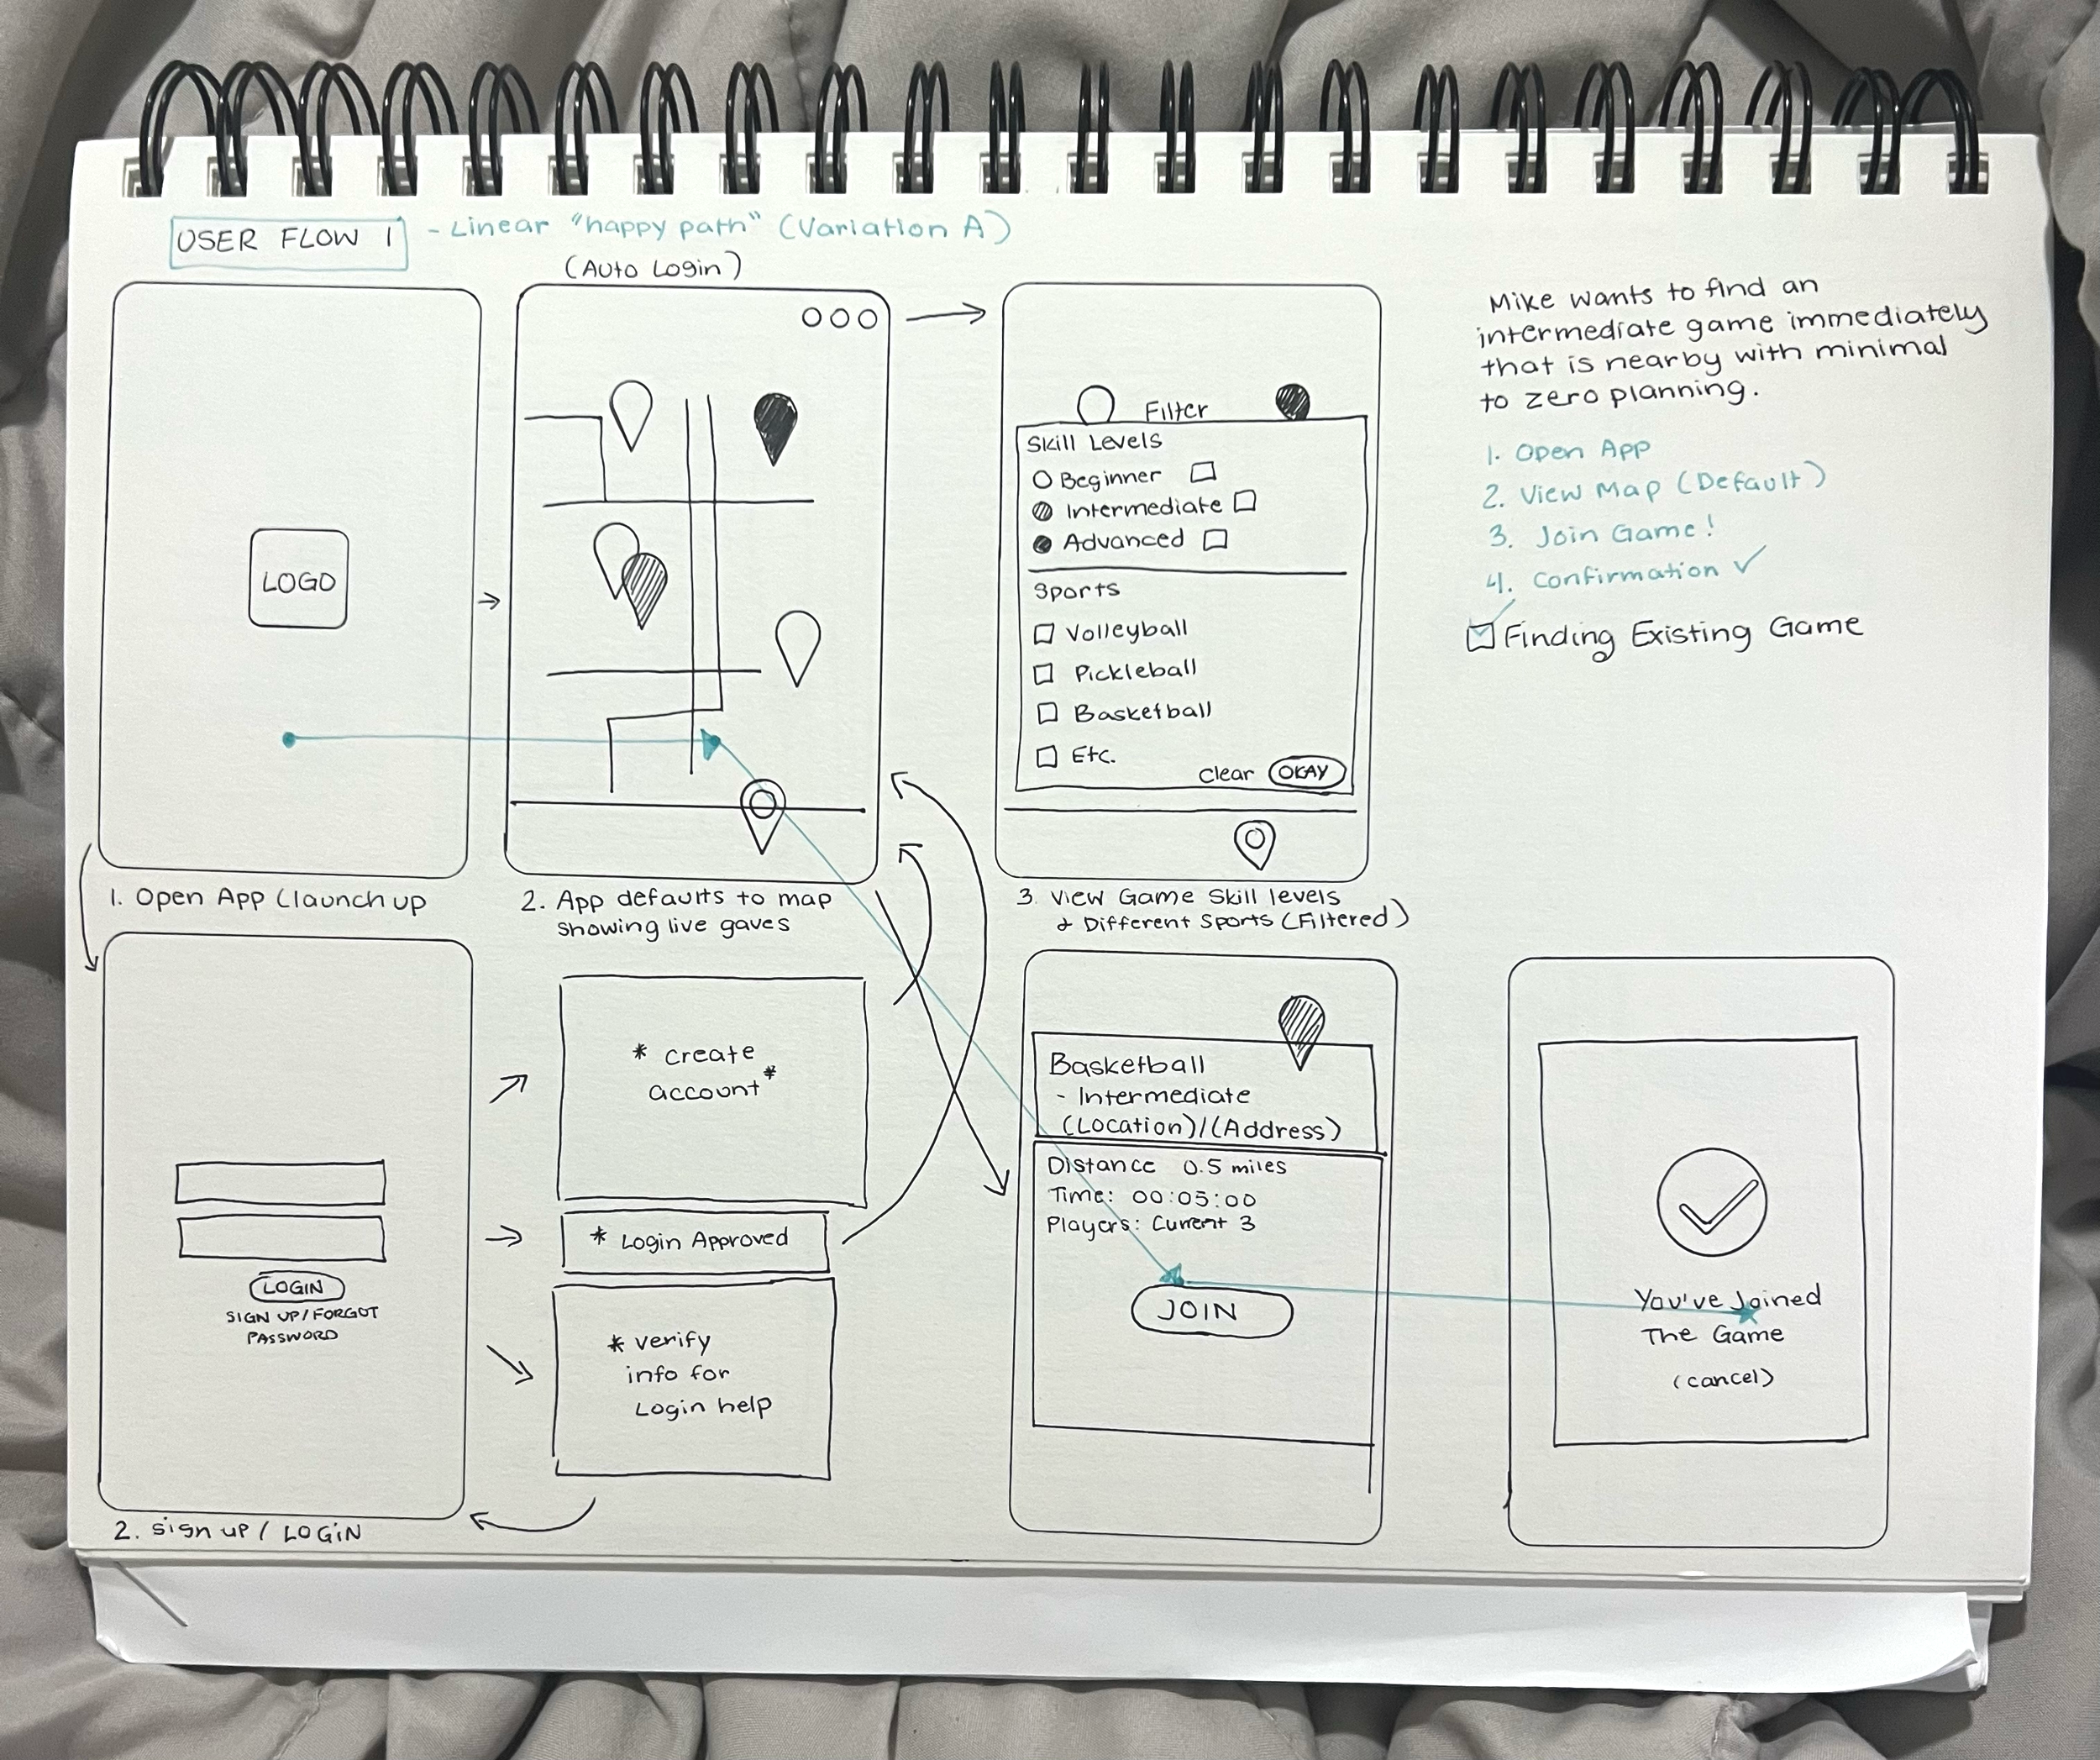 USER FLOW 1 - Linear "happy path" (Variation A)
(Auto Login)
LOGO
1. Open App (launch up
2. App defaults to map
showing live gaves
Filter
Skill Levels
Beginner
Intermediate
Advanced
Sports
Volleyball
Pickleball
Basketball
Etc.
Clear OKAY
3. View Game Skill levels
& Different Sports (Filtered)
Mike wants to find an
intermediate game immediately
that is nearby with minimal
to zero planning.
1. Open App
2. View Map (Default)
3. Join Game!
4. Confirmation ✓
☑ Finding Existing Game
LOGIN
SIGN UP/FORGOT
PASSWORD
2. Sign up / LOGIN
* create
account*
* Login Approved
* verify
info for
Login help
Basketball
- Intermediate
(Location)/(Address)
Distance 0.5 miles
Time: 00:05:00
Players: Current 3
JOIN
You've Joined
The Game
(cancel)